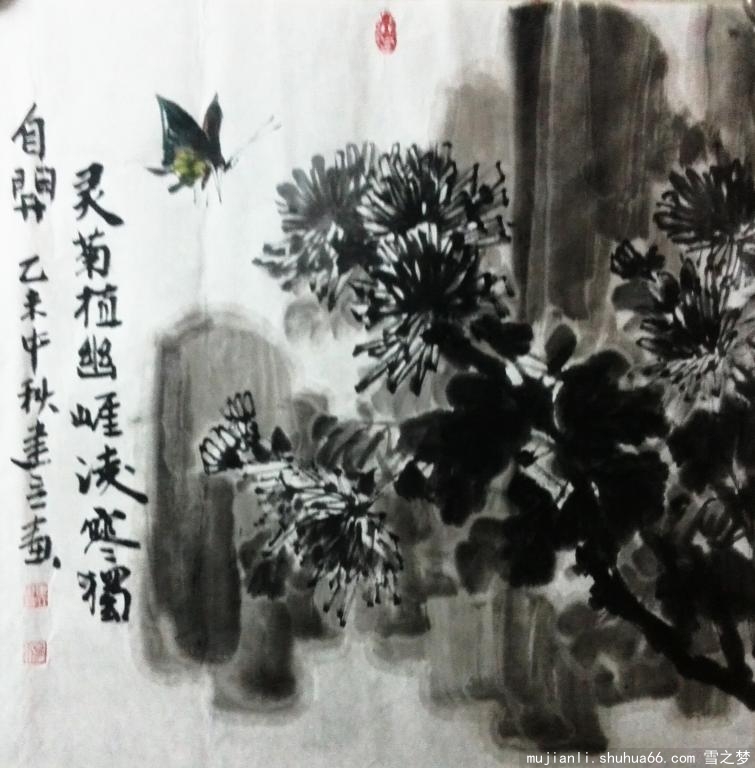 灵菊植幽崕凌寒獨
自開 乙未中秋建立画
mujianli.shuhua66.com 雪之梦